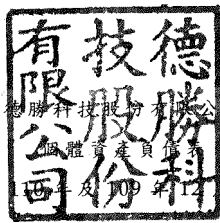 德勝科
技股份
有限公司
德勝科技股份有限公
個體資產負債表
110年及109年12